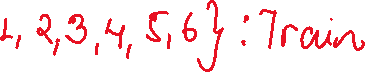 1, 2, 3, 4, 5, 6} : Train